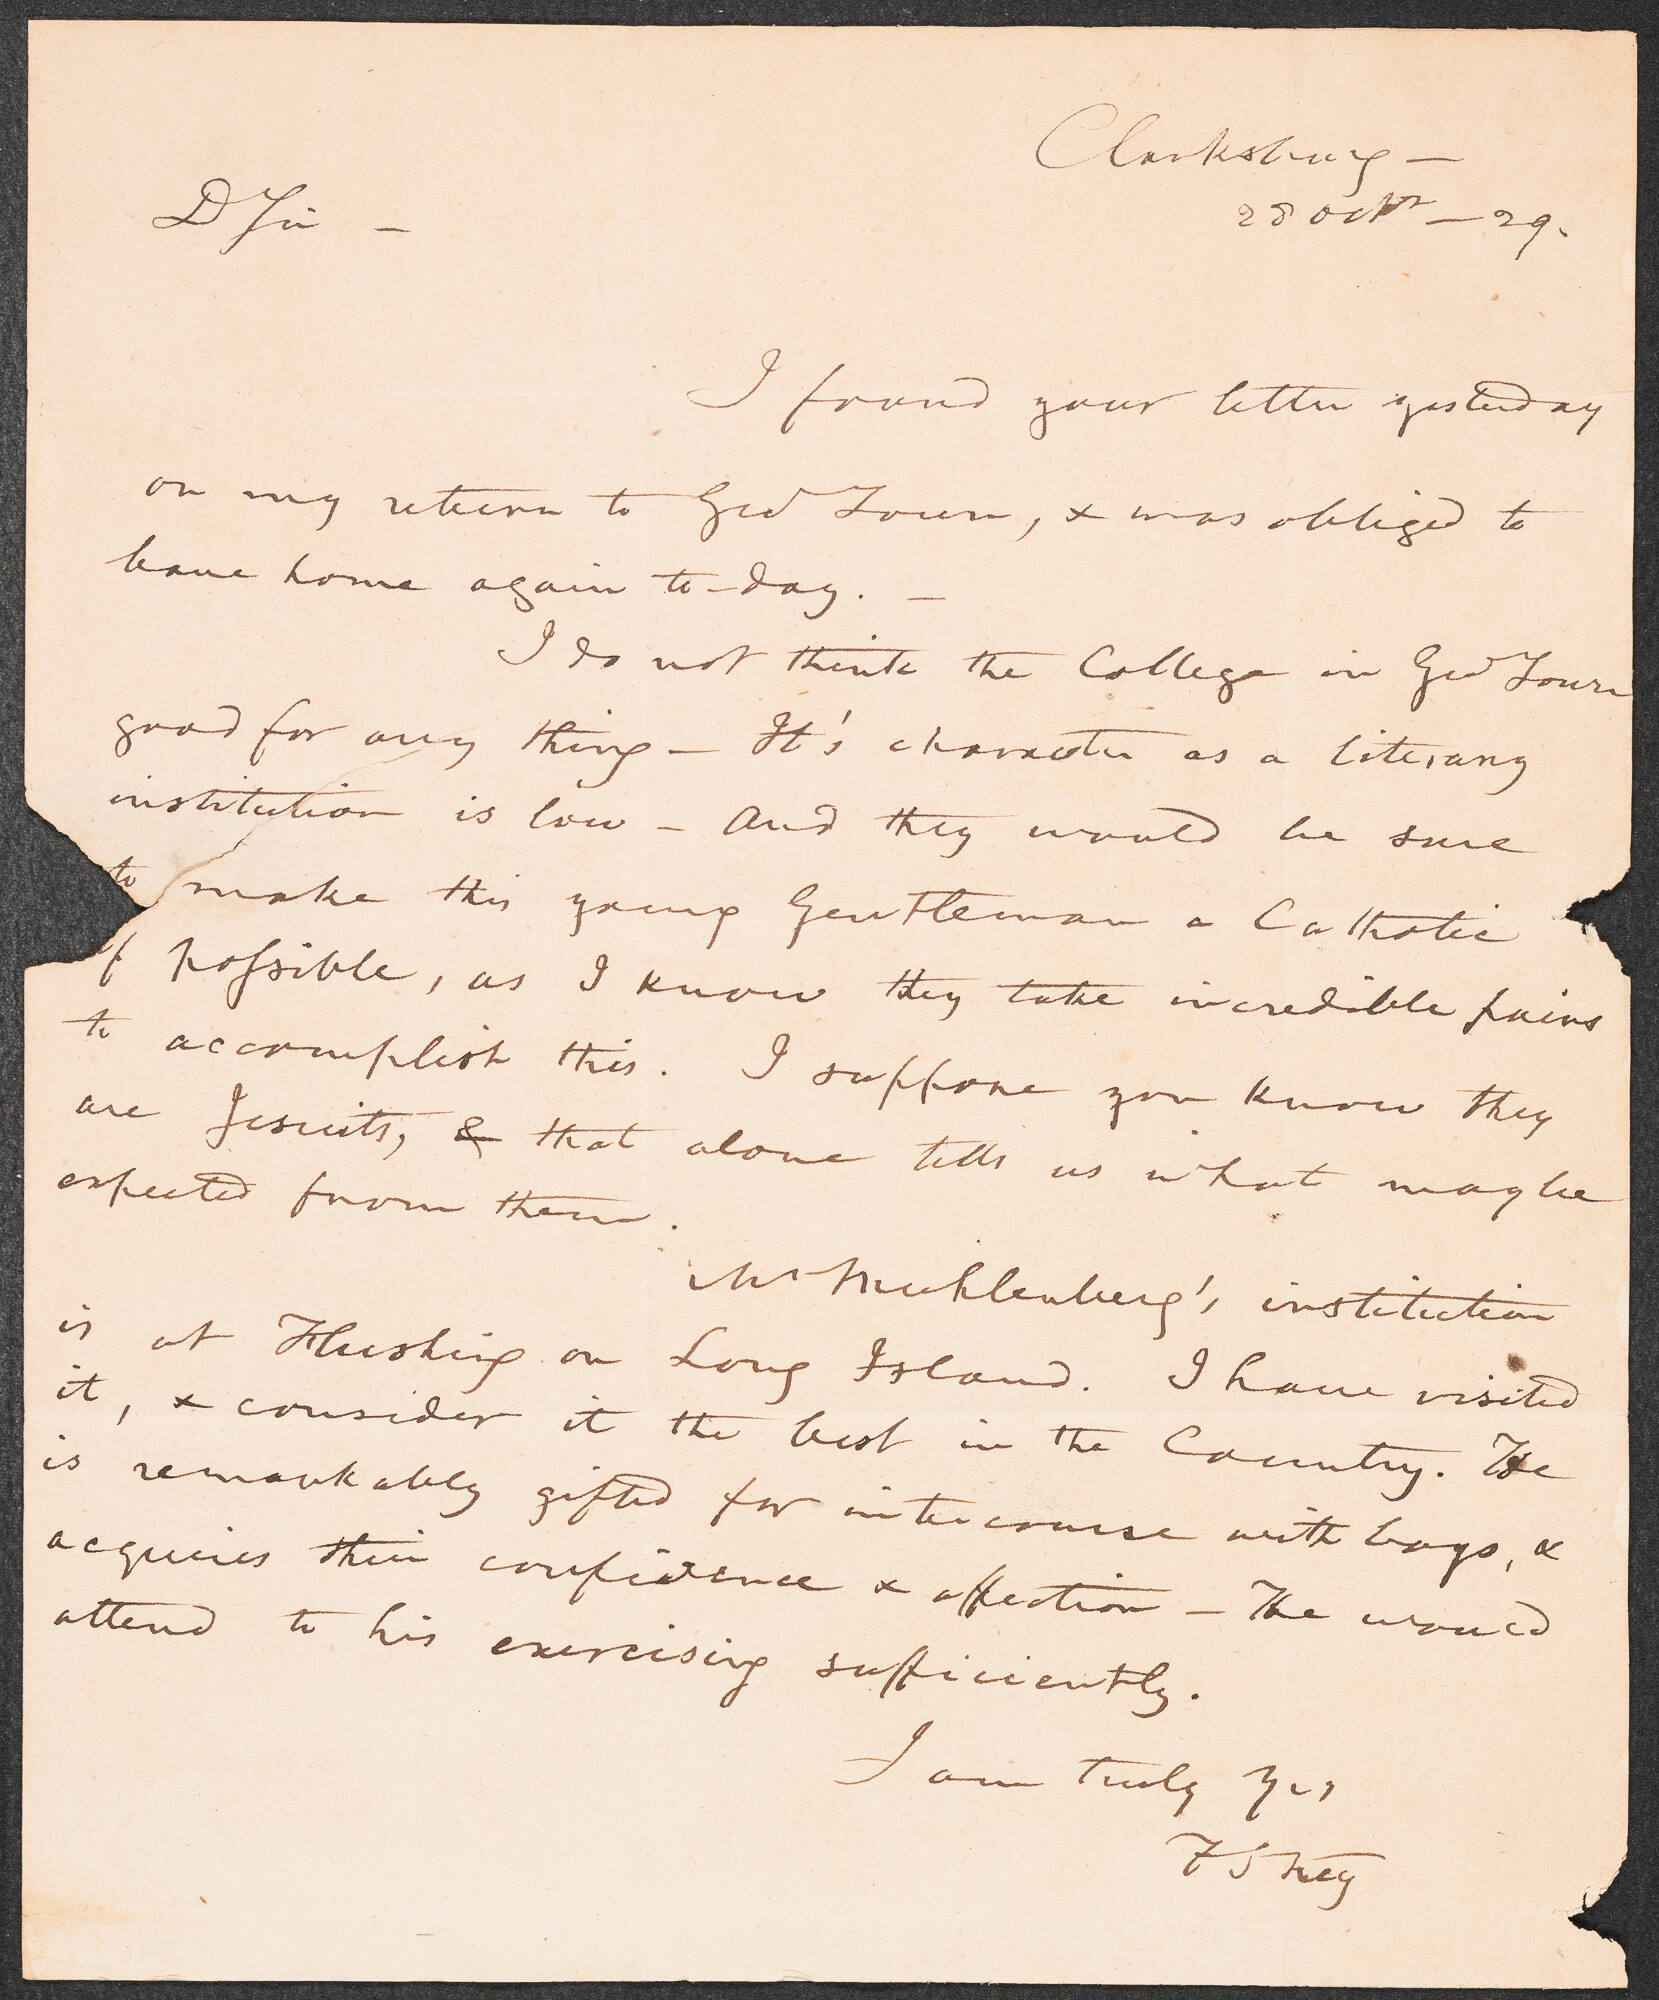 Clarksburg —
28 Octr — 29.
D Sir —
I found your letter yesterday
on my return to Geo Town, & was obliged to
leave home again to-day. —
I do not think the College in Geo Town
good for any thing — It's character as a literary
institution is low — And they would be sure
to make this young Gentleman a Catholic
if possible, as I know they take incredible pains
to accomplish this. I suppose you know they
are Jesuits, & that alone tells us what may be
expected from them.
Mr Muhlenberg's institution
is at Flushing on Long Island. I have visited
it, & consider it the best in the Country. He
is remarkably gifted for intercourse with boys, &
acquires their confidence & affection — He would
attend to his exercising sufficiently.
I am truly Yrs
F S Key